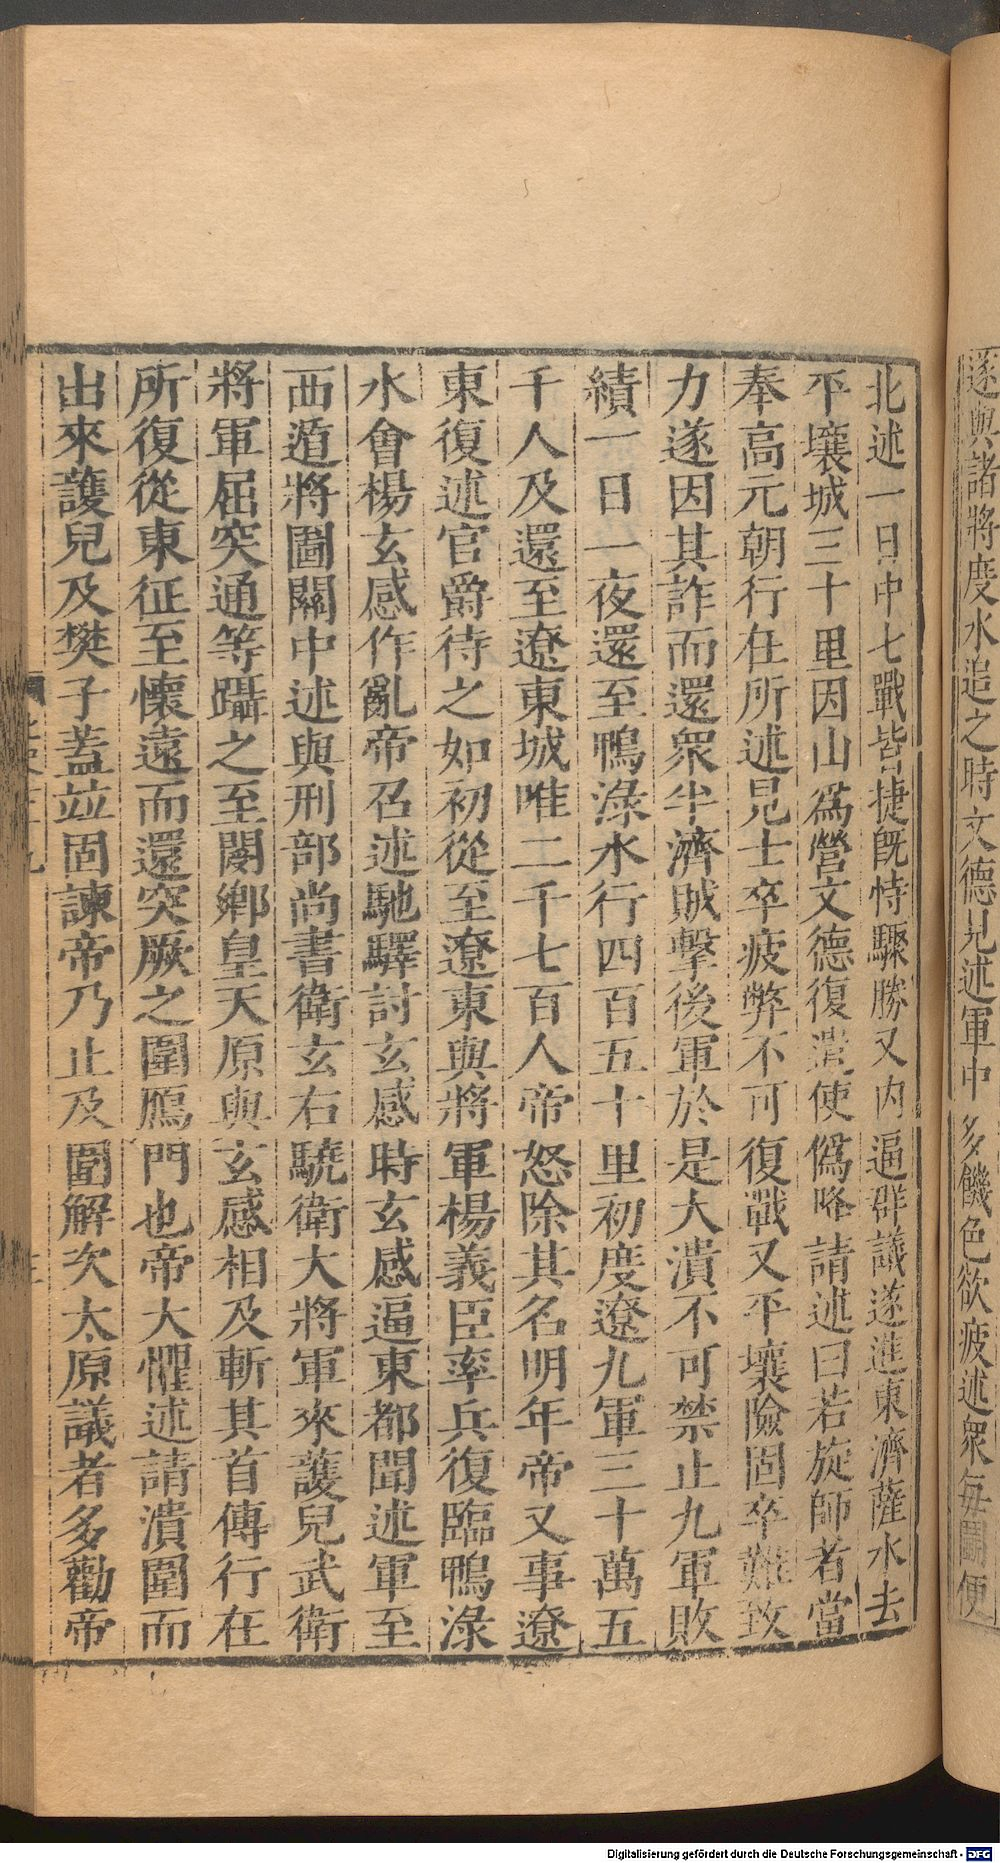 遂與諸將度水追之時文德見述軍中多饑色欲疲述衆每鬬便
北述一日中七戰皆捷旣恃驟勝又內逼群議遂進東濟薩水去
平壤城三十里因山爲營文德復遣使僞降請述曰若旋師者當
奉高元朝行在所述見士卒疲弊不可復戰又平壤險固卒難致
力遂因其詐而還衆半濟賊擊後軍於是大潰不可禁止九軍敗
績一日一夜還至鴨淥水行四百五十里初度遼九軍三十萬五
千人及還至遼東城唯二千七百人帝怒除其名明年帝又事遼
東復述官爵待之如初從至遼東與將軍楊義臣率兵復臨鴨淥
水會楊玄感作亂帝召述馳驛討玄感時玄感逼東都聞述軍至
西遁將圖關中述與刑部尚書衛玄右驍衛大將軍來護兒武衛
將軍屈突通等躡之至閿鄉皇天原與玄感相及斬其首傳行在
所復從東征至懷遠而還突厥之圍鴈門也帝大懼述請潰圍而
出來護兒及樊子蓋竝固諫帝乃止及圍解次太原議者多勸帝
Digitalisierung gefördert durch die Deutsche Forschungsgemeinschaft - DFG